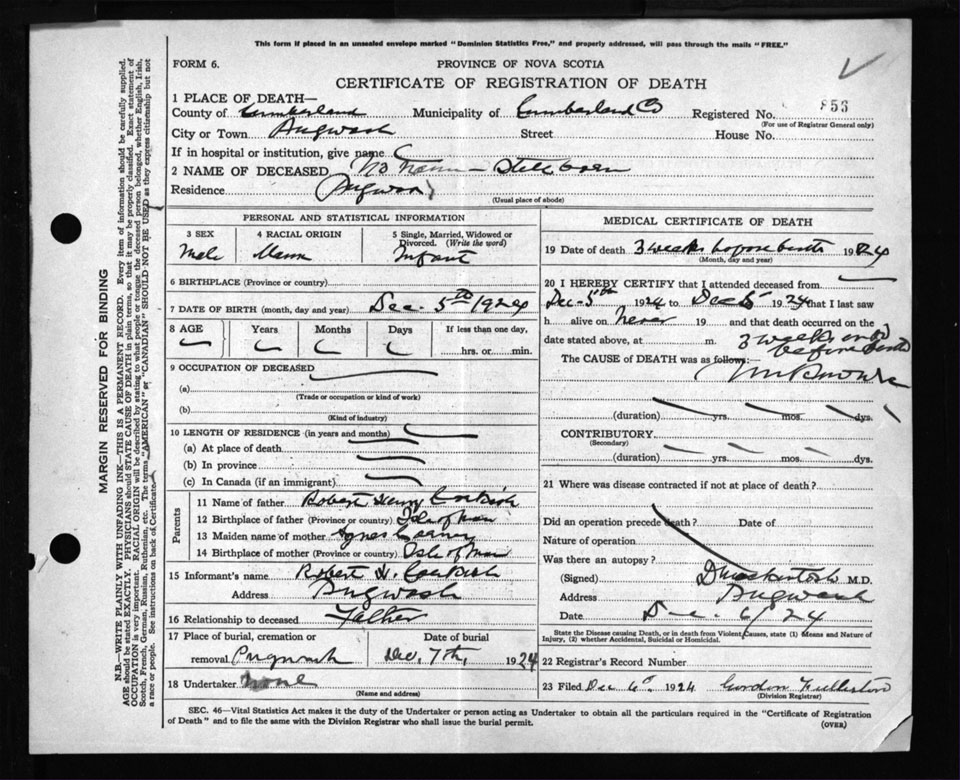 This form if placed in an unsealed envelope marked "Dominion Statistics Free," and properly addressed, will pass through the mails "FREE."
FORM 6.
PROVINCE OF NOVA SCOTIA
CERTIFICATE OF REGISTRATION OF DEATH
1 PLACE OF DEATH—
County of Cumberland Municipality of Cumberland Co Registered No. 853
(For use of Registrar General only)
City or Town Pugwash Street House No.
If in hospital or institution, give name
2 NAME OF DECEASED No Name - Still born
Residence Pugwash
(Usual place of abode)
PERSONAL AND STATISTICAL INFORMATION
3 SEX 4 RACIAL ORIGIN 5 Single, Married, Widowed or Divorced. (Write the word)
Male Manx Infant
6 BIRTHPLACE (Province or country)
7 DATE OF BIRTH (month, day and year) Dec. 5th 1924
8 AGE Years Months Days If less than one day,
hrs. or min.
9 OCCUPATION OF DECEASED
(a)
(Trade or occupation or kind of work)
(b)
(Kind of industry)
10 LENGTH OF RESIDENCE (in years and months)
(a) At place of death
(b) In province
(c) In Canada (if an immigrant)
Parents
11 Name of father Robert Henry
12 Birthplace of father (Province or country) Isle of Man
13 Maiden name of mother Agnes
14 Birthplace of mother (Province or Country) Isle of Man
15 Informant's name Robert H.
Address Pugwash
16 Relationship to deceased Father
17 Place of burial, cremation or Date of burial
removal Pugwash Dec. 7th, 1924
18 Undertaker None
(Name and address)
MEDICAL CERTIFICATE OF DEATH
19 Date of death 3 weeks before birth 1924
(Month, day and year)
20 I HEREBY CERTIFY that I attended deceased from
Dec. 5th 1924 to Dec 5 1924 that I last saw
h alive on never 19 and that death occurred on the
date stated above, at m. 3 weeks
before birth
The CAUSE OF DEATH was as follows:—
Unknown
(duration) yrs. mos. dys.
CONTRIBUTORY
(Secondary)
(duration) yrs. mos. dys.
21 Where was disease contracted if not at place of death?
Did an operation precede death? Date of
Nature of operation
Was there an autopsy?
(Signed) D Mackintosh M.D.
Address Pugwash
Date Dec. 6/24
State the Disease causing Death, or in death from Violent Causes, state (1) Means and Nature of
Injury, (2) whether Accidental, Suicidal or Homicidal.
22 Registrar's Record Number
23 Filed Dec 6th 1924 Gordon Fullerton
(Division Registrar)
SEC. 46—Vital Statistics Act makes it the duty of the Undertaker or person acting as Undertaker to obtain all the particulars required in the "Certificate of Registration
of Death" and to file the same with the Division Registrar who shall issue the burial permit.
(OVER)
MARGIN RESERVED FOR BINDING
N.B.—WRITE PLAINLY WITH UNFADING INK—THIS IS A PERMANENT RECORD. Every item of information should be carefully supplied.
AGE should be stated EXACTLY. PHYSICIANS should STATE CAUSE OF DEATH in plain terms, so that it may be properly classified. Exact statement of
OCCUPATION is very important. RACIAL ORIGIN will be described by stating to what people or tongue the deceased person belonged, whether English, Irish,
Scotch, French, German, Russian, Ruthenian, etc. The terms "AMERICAN" or "CANADIAN" SHOULD NOT BE USED as they express citizenship but not
a race or people. See instructions on back of Certificate.